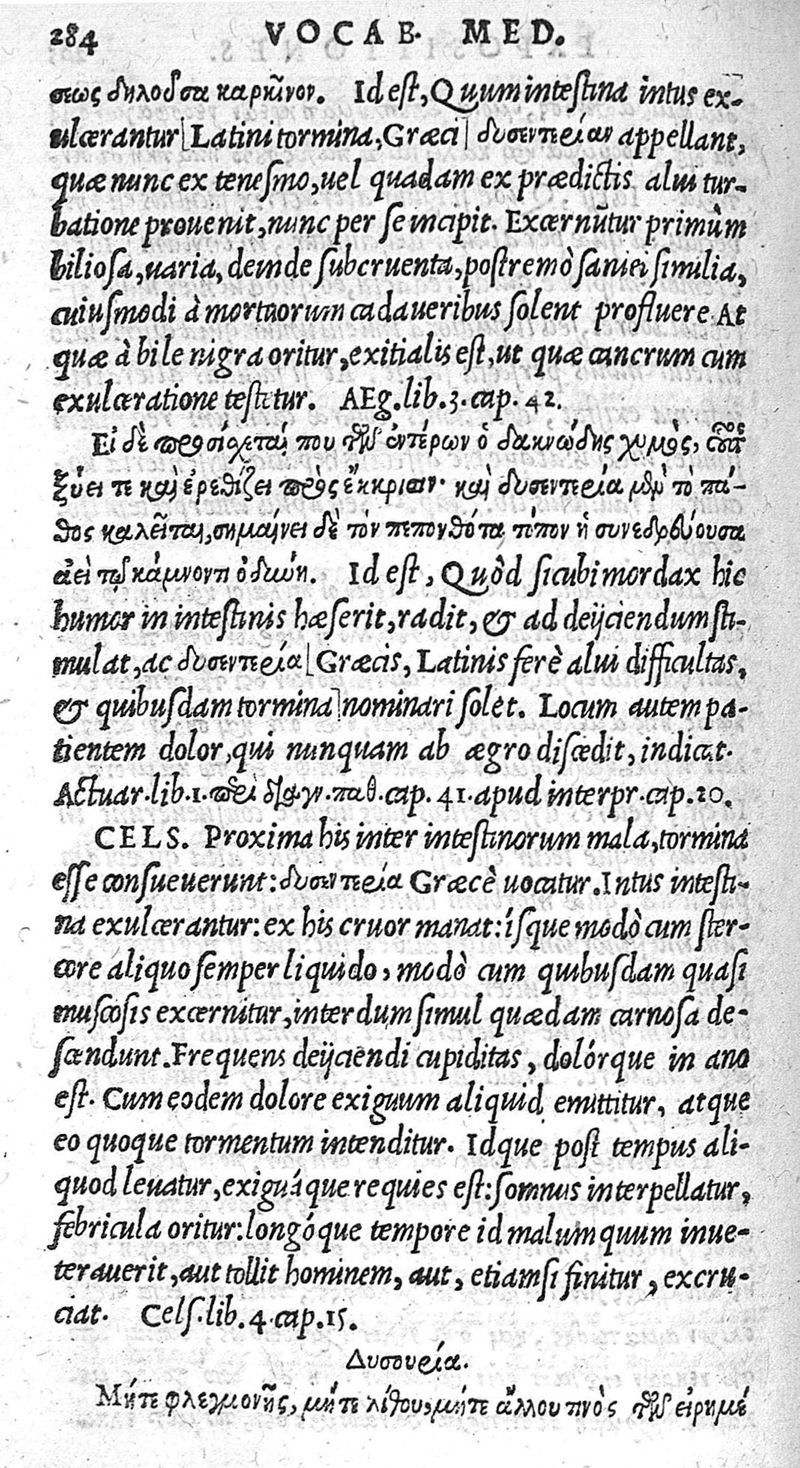 284 VOCAB. MED.
σεως δηλοῦσα καρκῖνον. Id est, Quum intestina intus ex-
ulcerantur [Latini tormina, Græci] δυσεντερίαν appellant,
quæ nunc ex tenesmo, uel quadam ex prædictis alui tur-
batione prouenit, nunc per se incipit. Excernūtur primùm
biliosa, uaria, deinde subcruenta, postremò saniei similia,
cuiusmodi à mortuorum cadaueribus solent profluere At
quæ à bile nigra oritur, exitialis est, ut quæ cancrum cum
exulceratione testetur. AEg. lib. 3. cap. 42.
Εἰ δὲ προσίσχεται που τῶν ἐντέρων ὁ δακνώδης χυμὸς,
ξύει τε καὶ ἐρεθίζει πρὸς ἔκκρισιν· καὶ δυσεντερία μὲν τὸ πά-
θος καλεῖται, σημαίνει δὲ τὸν πεπονθότα τόπον ἡ συνεδρεύουσα
ἀεὶ τῷ κάμνοντι ὀδύνη. Id est, Quòd sicubi mordax hic
humor in intestinis hæserit, radit, & ad deijciendum sti-
mulat, ac δυσεντερία [Græcis, Latinis ferè alui difficultas,
& quibusdam tormina] nominari solet. Locum autem pa-
tientem dolor, qui nunquam ab ægro discedit, indicat.
Actuar. lib. 1. περὶ διαγν. παθ. cap. 41. apud interpr. cap. 20.
CELS. Proxima his inter intestinorum mala, tormina
esse consueuerunt: δυσεντερία Græcè uocatur. Intus intesti-
na exulcerantur: ex his cruor manat: ísque modò cum ster-
core aliquo semper liquido, modò cum quibusdam quasi
muscosis excernitur, interdum simul quædam carnosa de-
scendunt. Frequens deijciendi cupiditas, dolórque in ano
est. Cum eodem dolore exiguum aliquid emittitur, atque
eo quoque tormentum intenditur. Idque post tempus ali-
quod leuatur, exiguáque requies est: somnus interpellatur,
febricula oritur: longóque tempore id malum quum inue-
terauerit, aut tollit hominem, aut, etiamsi finitur, excru-
ciat. Cels. lib. 4. cap. 15.
Δυσουρία.
Μήτε φλεγμονῆς, μήτε λίθου, μήτε ἄλλου τινὸς τῶν εἰρημέ